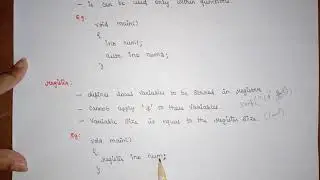 - is can be used only within functions.
Eg:
void main()
{
int num1;
auto int num2;
}
Register:-
- define local variables to be stored in registers
- Cannot apply '&' to these variables.
- Variable size is equal to the register size.
Eg:
void main()
{
register int num;
}